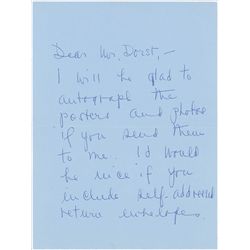 Dear Mr. Dorst, –
I will be glad to
autograph the
posters and photos
if you send them
to me. Id would
be nice if you
include self-addressed
return envelope.